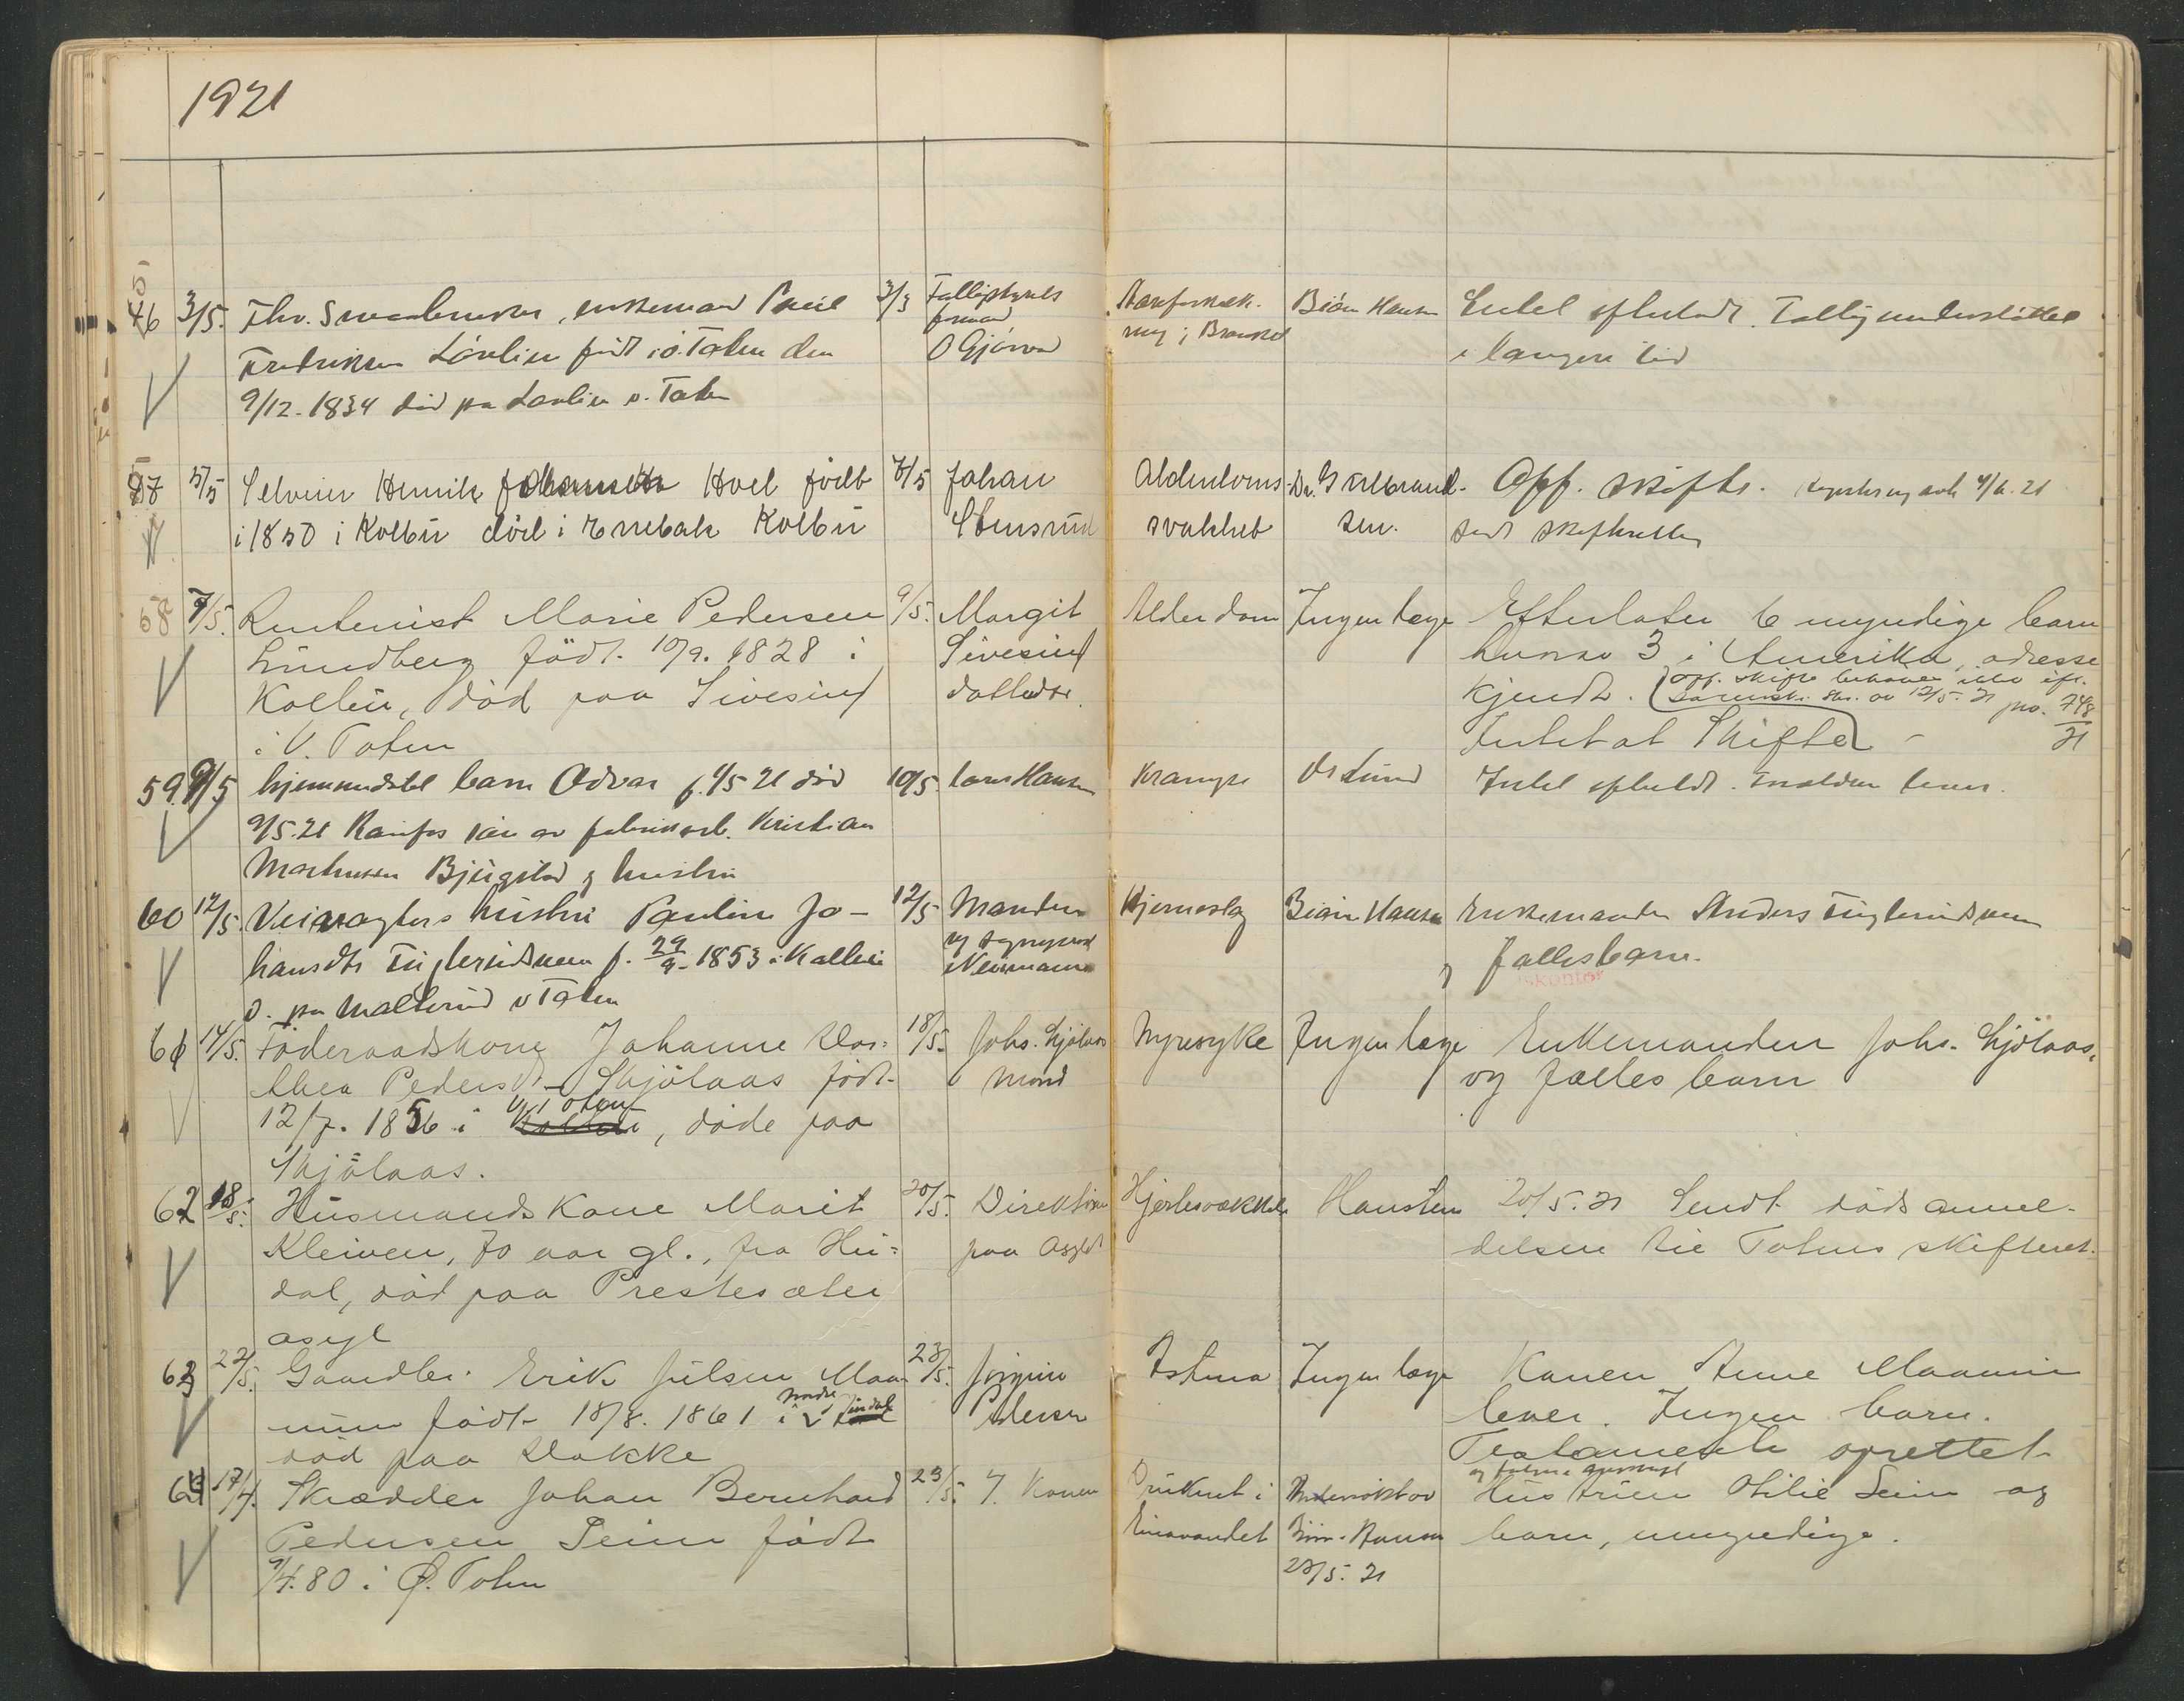 1921
56 3/5. Fhv. enkemand
Fredriksen Lövlien født i ö. Toten den
9/12-1834 död pa Lövlien v. Toten
3/5 Fattigstyrets
formand
O Gjörven
i Brandt
Björn Hansen
Intet efterladt. Fattigunderstöttet
i længere tid
57 5/5 Selveier Henrik Hoel född
i 1850 i Kolbu död i Kolbu
7/5 Johan
Stensrud
Alderdoms-
svakhet
Dr. Gulbrand-
sen.
Off. skifte.
sendt skifteretten
58 7/5. Rentenist Marie Pedersen
Lundberg födt. 10/9. 1828 i
Kolbu, död paa Sivesind
i V. Toten
9/5. Margit
Sivesind
datter
Alderdom
Ingen læge
Efterlater 6 myndige barn
hvorav 3 i Amerika, adresse
kjendt. (off. skifte behöver ikke ifl.
av 12/5-21 jno. 748/21
Intet at skifte -
59 9/5 hjemmedöbt barn Odvar f. 4/5 21 död
9/5.21 Raufos sön av fabrikarb. Kristian
Martinsen Bjugstad og hustru
10/5. Lars Hansen
Krampe
Dr Lund
Intet efterladt. Forældre lever.
60 12/5. Veivogters hustru Pauline Jo-
hansdtr Fuglerudsveen f. 29/9-1853 i Kolbu
d. pa Malterud v Toten
12/5 Manden
Hjerneslag
Björn Hansen
Enkemanden Anders Fuglerudsveen
og fellesbarn.
61 14/5. Föderaadskone Johanne Dor-
thea Pedersdt. Skjölaas födt-
12/7. 1856 i V. Toten, döde paa
Skjölaas.
18/5. Johs. Skjölaas
mand
Nyresyke
Ingen læge
Enkemanden Johs. Skjölaas,
og fælles barn
62 18/5. Husmandskone Marit
Kleiven, 70 aar gl., fra Hei-
dal, död paa Prestesæter
asyl
20/5. Direktören
paa Asylet
Hjertesvækkelse
Haustein
20/5. 21 Sendt dödsanmel-
delsen til Totens skifteret.
63 22/5. Gaardbr. Erik Julsen Maa-
num födt- 18/8. 1861 i
död paa Dokke
23/5. Jörgine
Pedersen
Astma
Ingen læge
Konen Anne Maanum
lever. Ingen barn.
Testamente oprettet
64 17/4. Skrædder Johan Bernhard
Pedersen Seim födt
9/4.80 i Ø. Toten
23/5. Konen
Druknet i
Einavandet
Undersökt av
Björn-Hansen
23/5. 21
Hustruen Otilie Seim og
barn, umyndige.